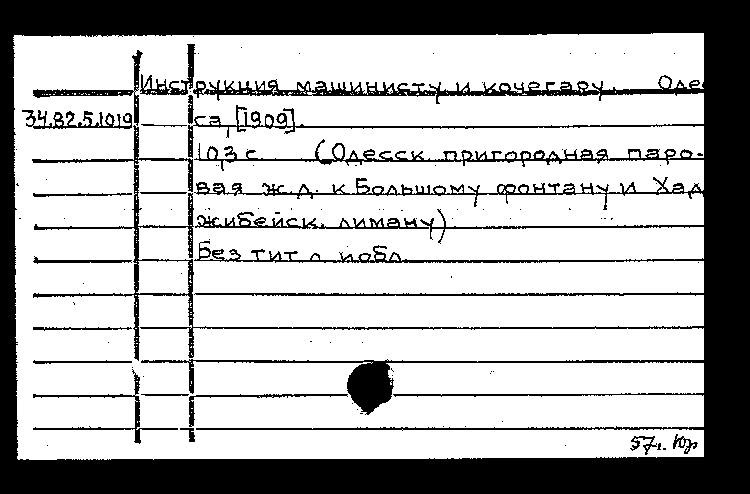 Инструкция машинисту и кочегару. Одес
34.82.5.1019 са, [1909].
10,3 с. (Одесск. пригородная паро-
вая ж.д. к Большому фонтану и Хад
жибейск. лиману)
Без тит. л. и обл.
57г. Юр